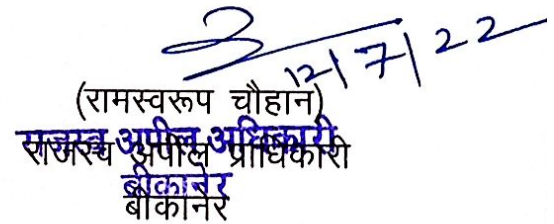 12/7/22
(रामस्वरूप चौहान)
राजस्व अपील अधिकारी
राजस्व अपील प्राधिकारी
बीकानेर
बीकानेर